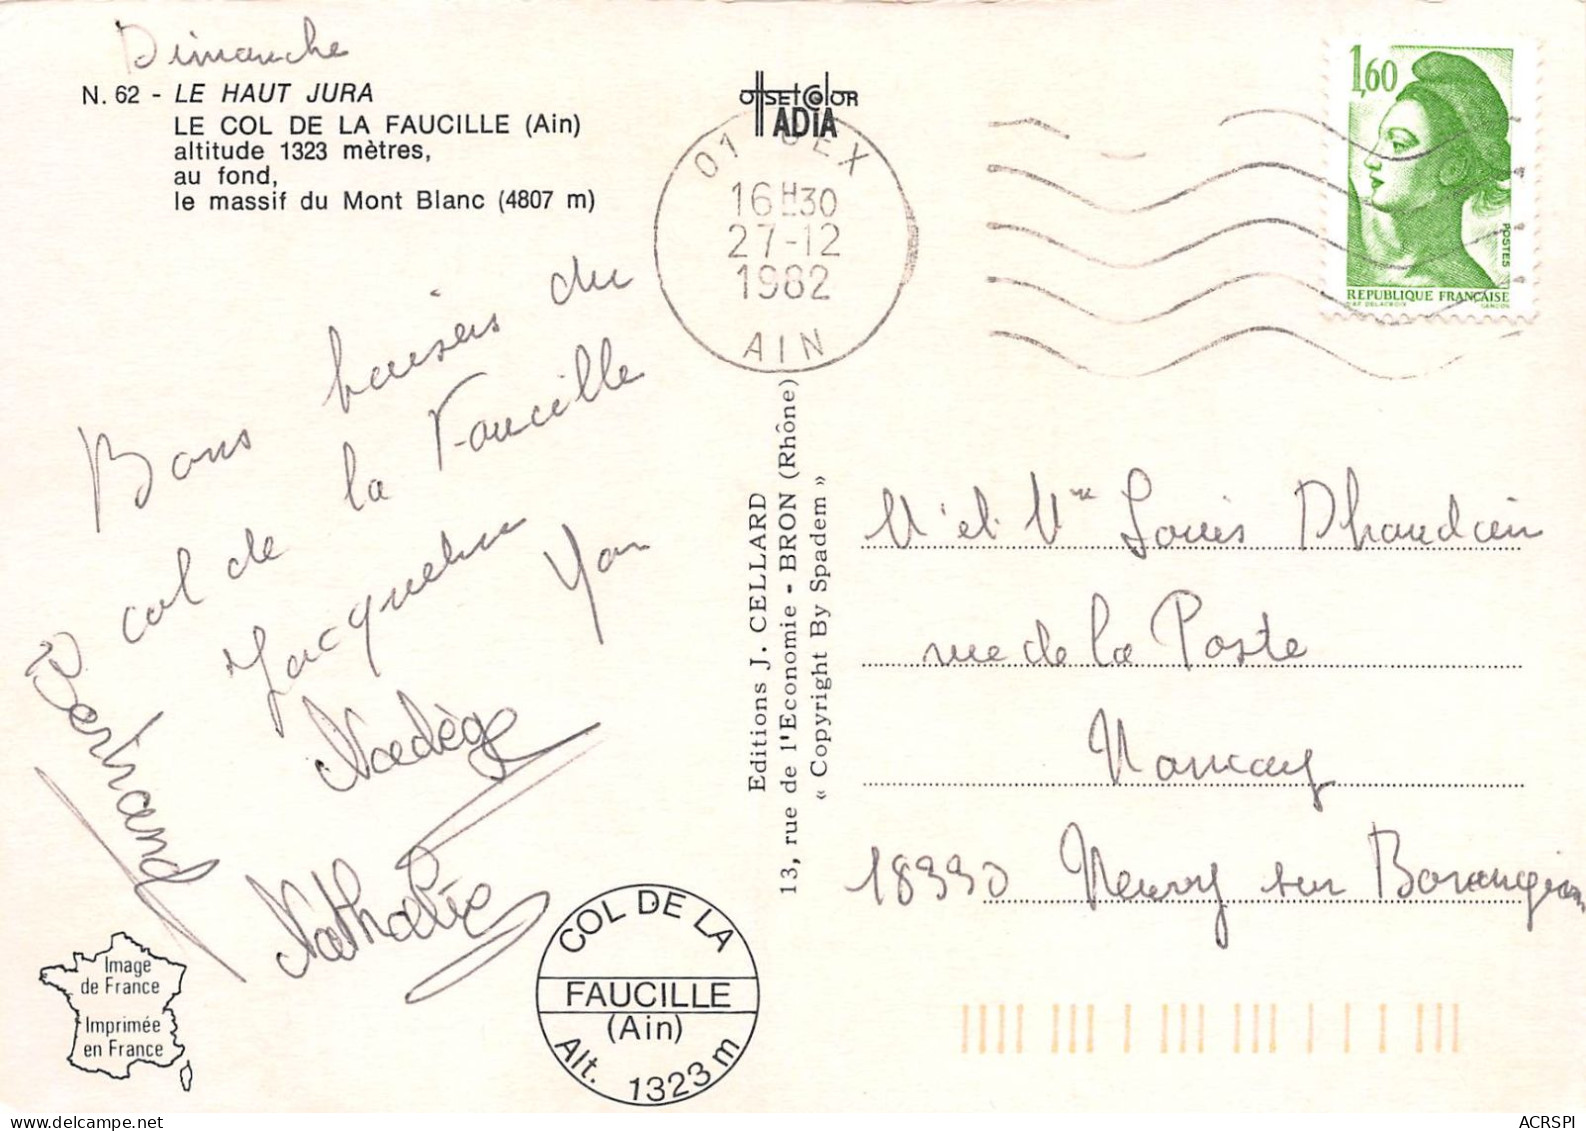 Dimanche
N. 62 - LE HAUT JURA
LE COL DE LA FAUCILLE (Ain)
altitude 1323 mètres,
au fond,
le massif du Mont Blanc (4807 m)
Offset Color
ADIA
01 GEX
16H30
27-12
1982
AIN
1,60
POSTES
REPUBLIQUE FRANÇAISE
D'AP. DELACROIX GANDON
Bons baisers du
col de la Faucille
Jacqueline Yan
Bertrand
Nadège
Nathalie
Editions J. CELLARD
13, rue de l'Economie - BRON (Rhône)
« Copyright By Spadem »
M et Mme Louis Dhaudain
rue de la Poste
Nançay
18330 Neuvy sur Barangeon
Image
de France
Imprimée
en France
COL DE LA
FAUCILLE
(Ain)
Alt. 1323 m
ACRSPI